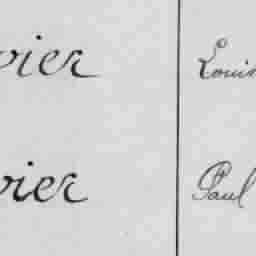 vier Louis
vier Paul